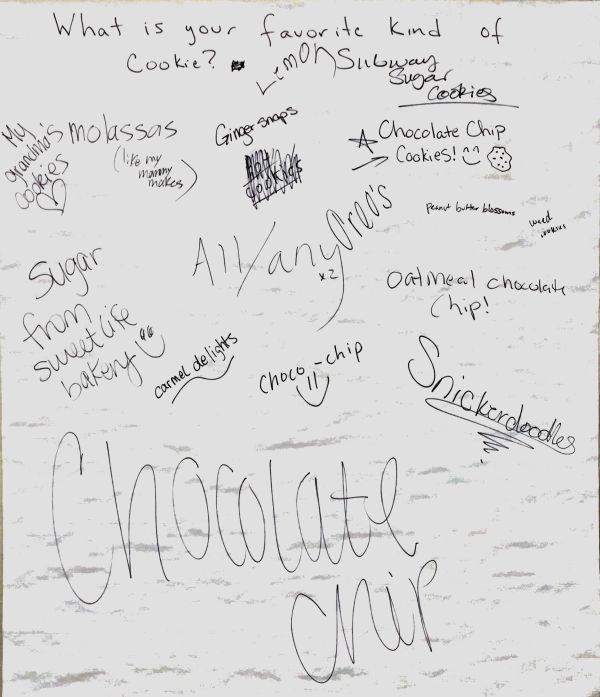 What is your favorite kind of
Cookie?
Lemon
Subway
Sugar
Cookies
My
grandma's
cookies
molassas
(like my
mommy
makes)
Ginger snaps
Chocolate Chip
Cookies!
peanut butter blossoms
weed
cookies
All/any x2
Oreo's
Oatmeal chocolate
Chip!
Sugar
from
sweet life
bakery
carmel delights
Choco-chip
Snickerdoodles
Chocolate
chip